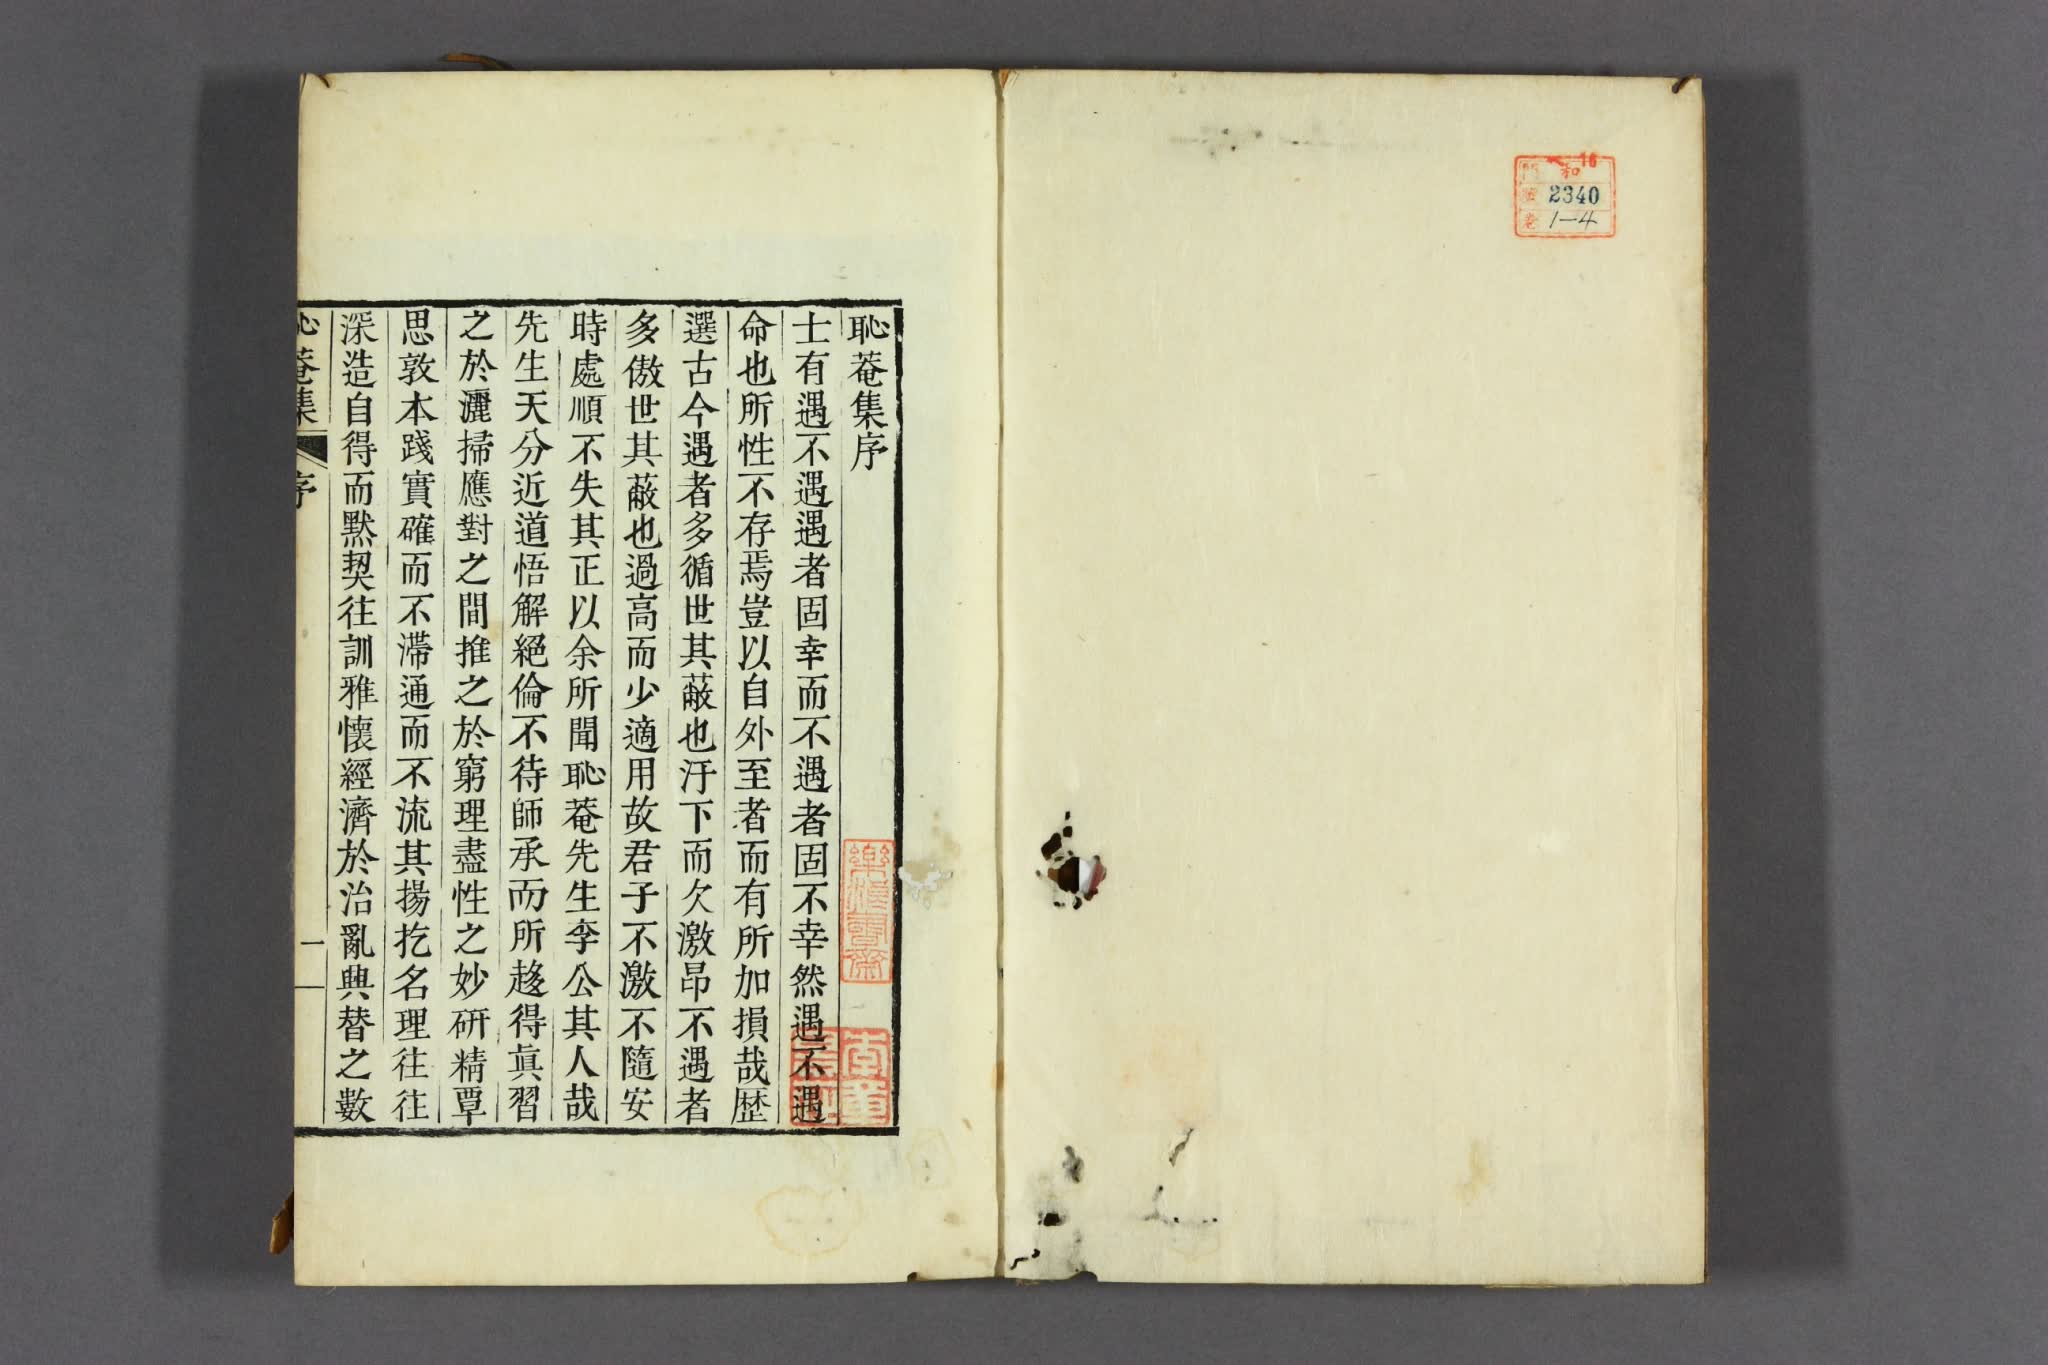 和 16
門
號 2340
卷 1-4
恥菴集序
士有遇不遇遇者固幸而不遇者固不幸然遇不遇
命也所性不存焉豈以自外至者而有所加損哉歷
選古今遇者多循世其蔽也汙下而欠激昂不遇者
多傲世其蔽也過高而少適用故君子不激不隨安
時處順不失其正以余所聞恥菴先生李公其人哉
先生天分近道悟解絕倫不待師承而所趍得眞習
之於灑掃應對之間推之於窮理盡性之妙硏精覃
思敦本踐實確而不滯通而不流其揚扢名理往往
深造自得而默契往訓雅懷經濟於治亂興替之數
恥菴集 序 一